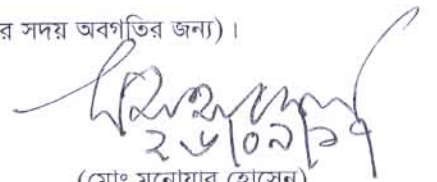 র সদয় অবগতির জন্য)।
২৬/০৯/১৭
(মোঃ মনোয়ার হোসেন)